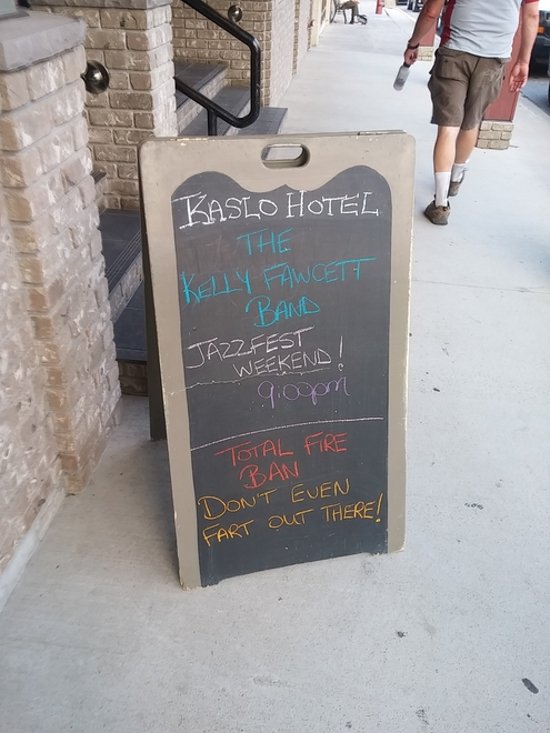 KASLO HOTEL
THE
KELLY FAWCETT
BAND
JAZZFEST
WEEKEND!
9:00pm
TOTAL FIRE
BAN
DON'T EVEN
FART OUT THERE!